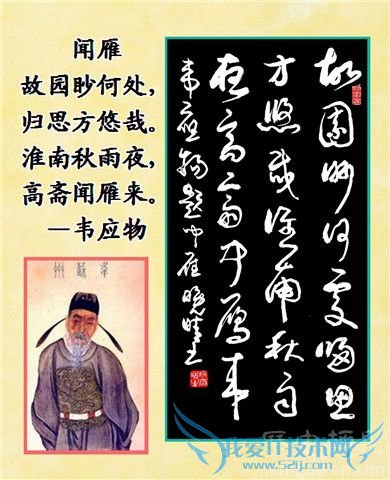 闻雁
故园眇何处,
归思方悠哉。
淮南秋雨夜,
高斋闻雁来。
—韦应物
故园眇何处归思
方悠哉淮南秋雨
夜高斋闻雁来
韦应物题闻雁
我爱IT技术网
www.52ij.com